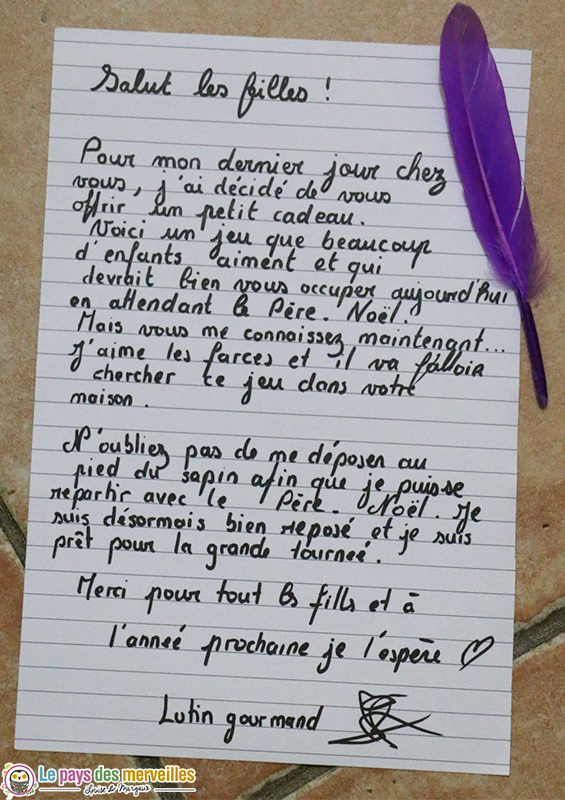 Salut les filles !
Pour mon dernier jour chez
vous, j'ai décidé de vous
offrir un petit cadeau.
Voici un jeu que beaucoup
d'enfants aiment et qui
devrait bien vous occuper aujourd'hui
en attendant le Père. Noël.
Mais vous me connaissez maintenant...
J'aime les farces et il va falloir
chercher ce jeu dans votre
maison.
N'oubliez pas de me déposer au
pied du sapin afin que je puisse
repartir avec le Père. Noël. Je
suis désormais bien reposé et je suis
prêt pour la grande tourneé.
Merci pour tout les fills et à
l'anneé prochaine je l'espère
Lutin gourmand
Le pays des merveilles
Louise & Margaux